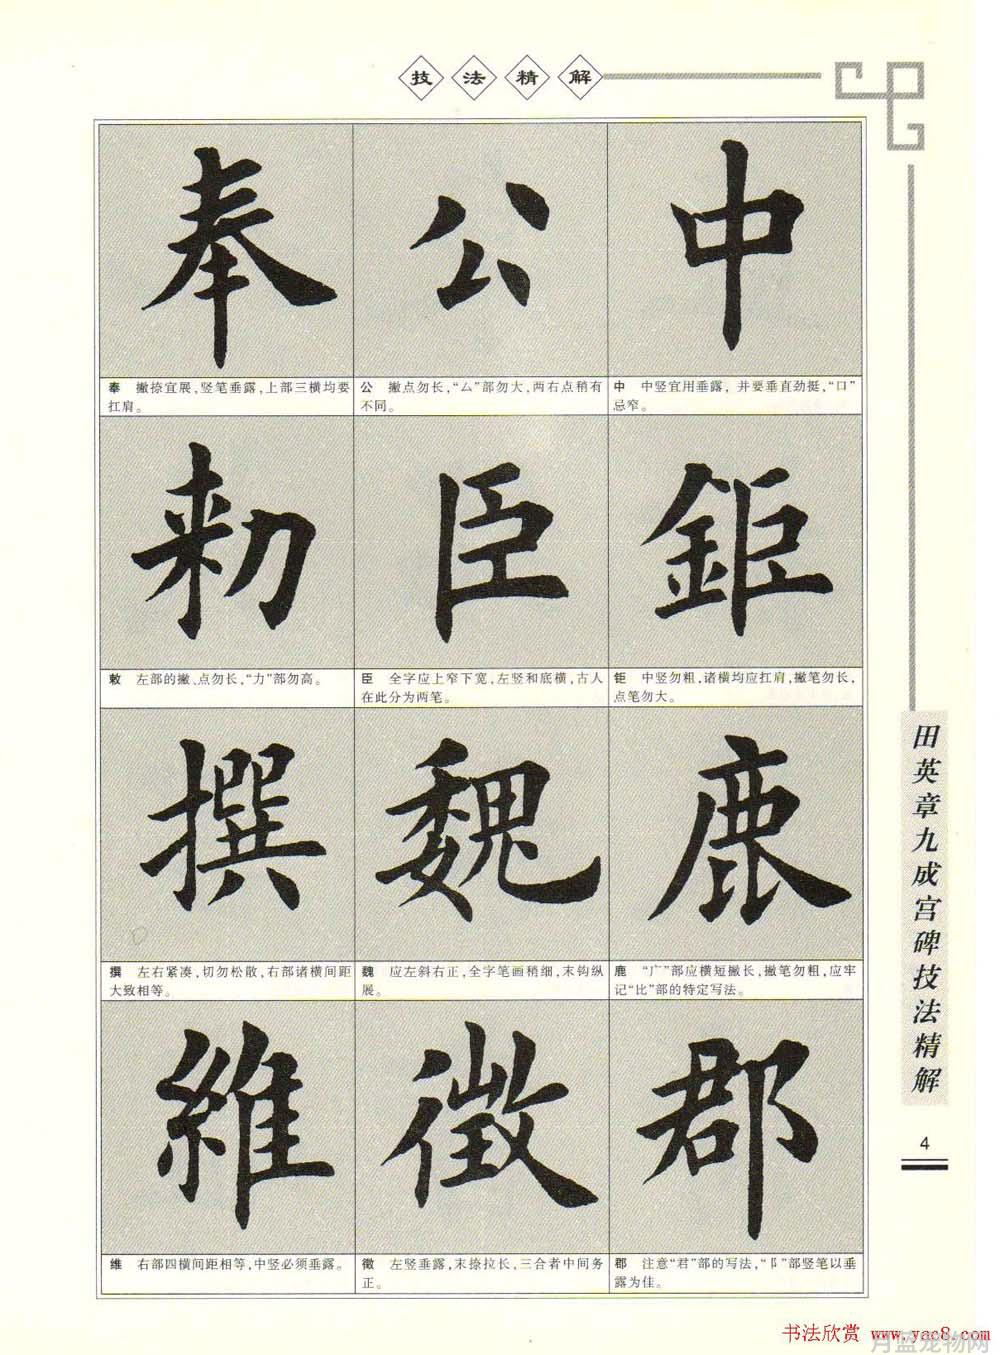 技法精解
奉 公 中
奉 撇捺宜展,竖笔垂露,上部三横均要
扛肩。
公 撇点勿长,“厶”部勿大,两右点稍有
不同。
中 中竖宜用垂露,并要垂直劲挺,“口”
忌窄。
勑 臣 鉅
敕 左部的撇、点勿长,“力”部勿高。
臣 全字应上窄下宽,左竖和底横,古人
在此分为两笔。
钜 中竖勿粗,诸横均应扛肩,撇笔勿长,
点笔勿大。
撰 魏 鹿
撰 左右紧凑,切勿松散,右部诸横间距
大致相等。
魏 应左斜右正,全字笔画稍细,末钩纵
展。
鹿 “广”部应横短撇长,撇笔勿粗,应牢
记“比”部的特定写法。
維 徵 郡
维 右部四横间距相等,中竖必须垂露。
徵 左竖垂露,末捺拉长,三合者中间务
正。
郡 注意“君”部的写法,“阝”部竖笔以垂
露为佳。
田英章九成宫碑技法精解
4
书法欣赏 www.yac8.com
月蓝宠物网